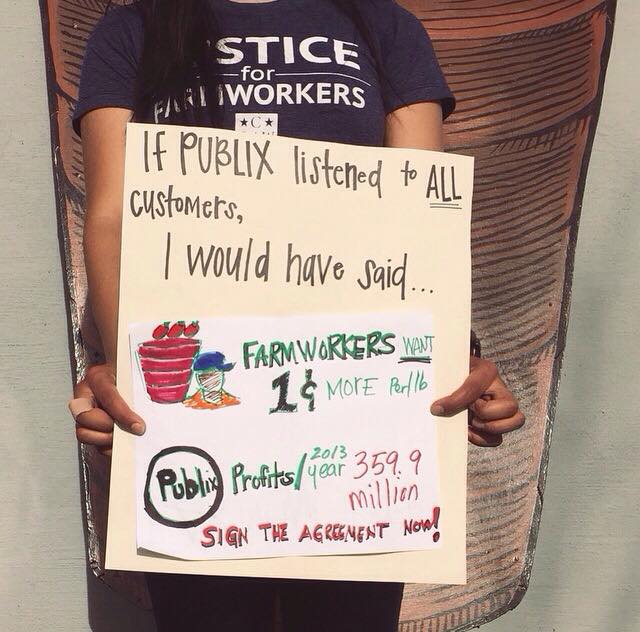 STICE
for
FARMWORKERS
★C★
If PUBLIX listened to ALL
customers,
I would have said...
FARMWORKERS WANT
1¢ MORE Per/lb
Publix Profits/2013 year 359.9
million
SIGN THE AGREEMENT NOW!